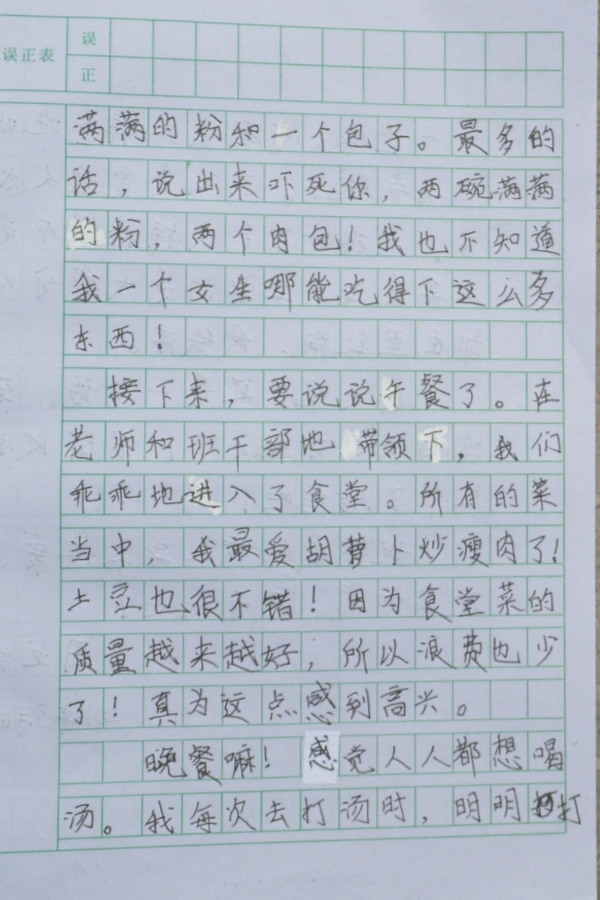 误正表
误
正
满满的粉和一个包子。最多的
话，说出来吓死你，两碗满满
的粉，两个肉包！我也不知道
我一个女生哪能吃得下这么多
东西！
接下来，要说说午餐了。在
老师和班干部地带领下，我们
乖乖地进入了食堂。所有的菜
当中，我最爱胡萝卜炒瘦肉了！
土豆也很不错！因为食堂菜的
质量越来越好，所以浪费也少
了！真为这点感到高兴。
晚餐嘛！感觉人人都想喝
汤。我每次去打汤时，明明打